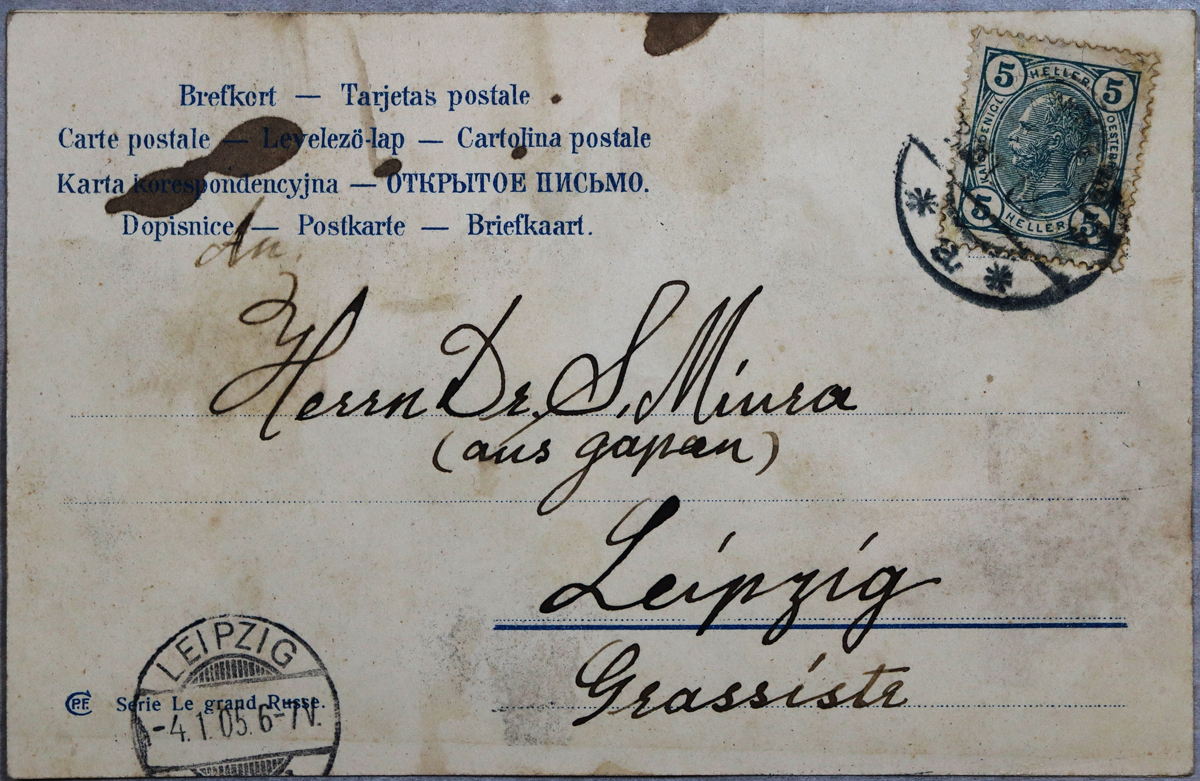 Brefkort — Tarjetas postale
Carte postale — Levelező-lap — Cartolina postale
Karta korespondencyjna — ОТКРЫТОЕ ПИСЬМО.
Dopisnice — Postkarte — Briefkaart.
An
Herrn Dr. S. Miura
(aus Japan)
Leipzig
Grassistr
5 HELLER 5
5 HELLER 5
LEIPZIG
-4.1.05.6-7V.
CPF Serie Le grand Russe.